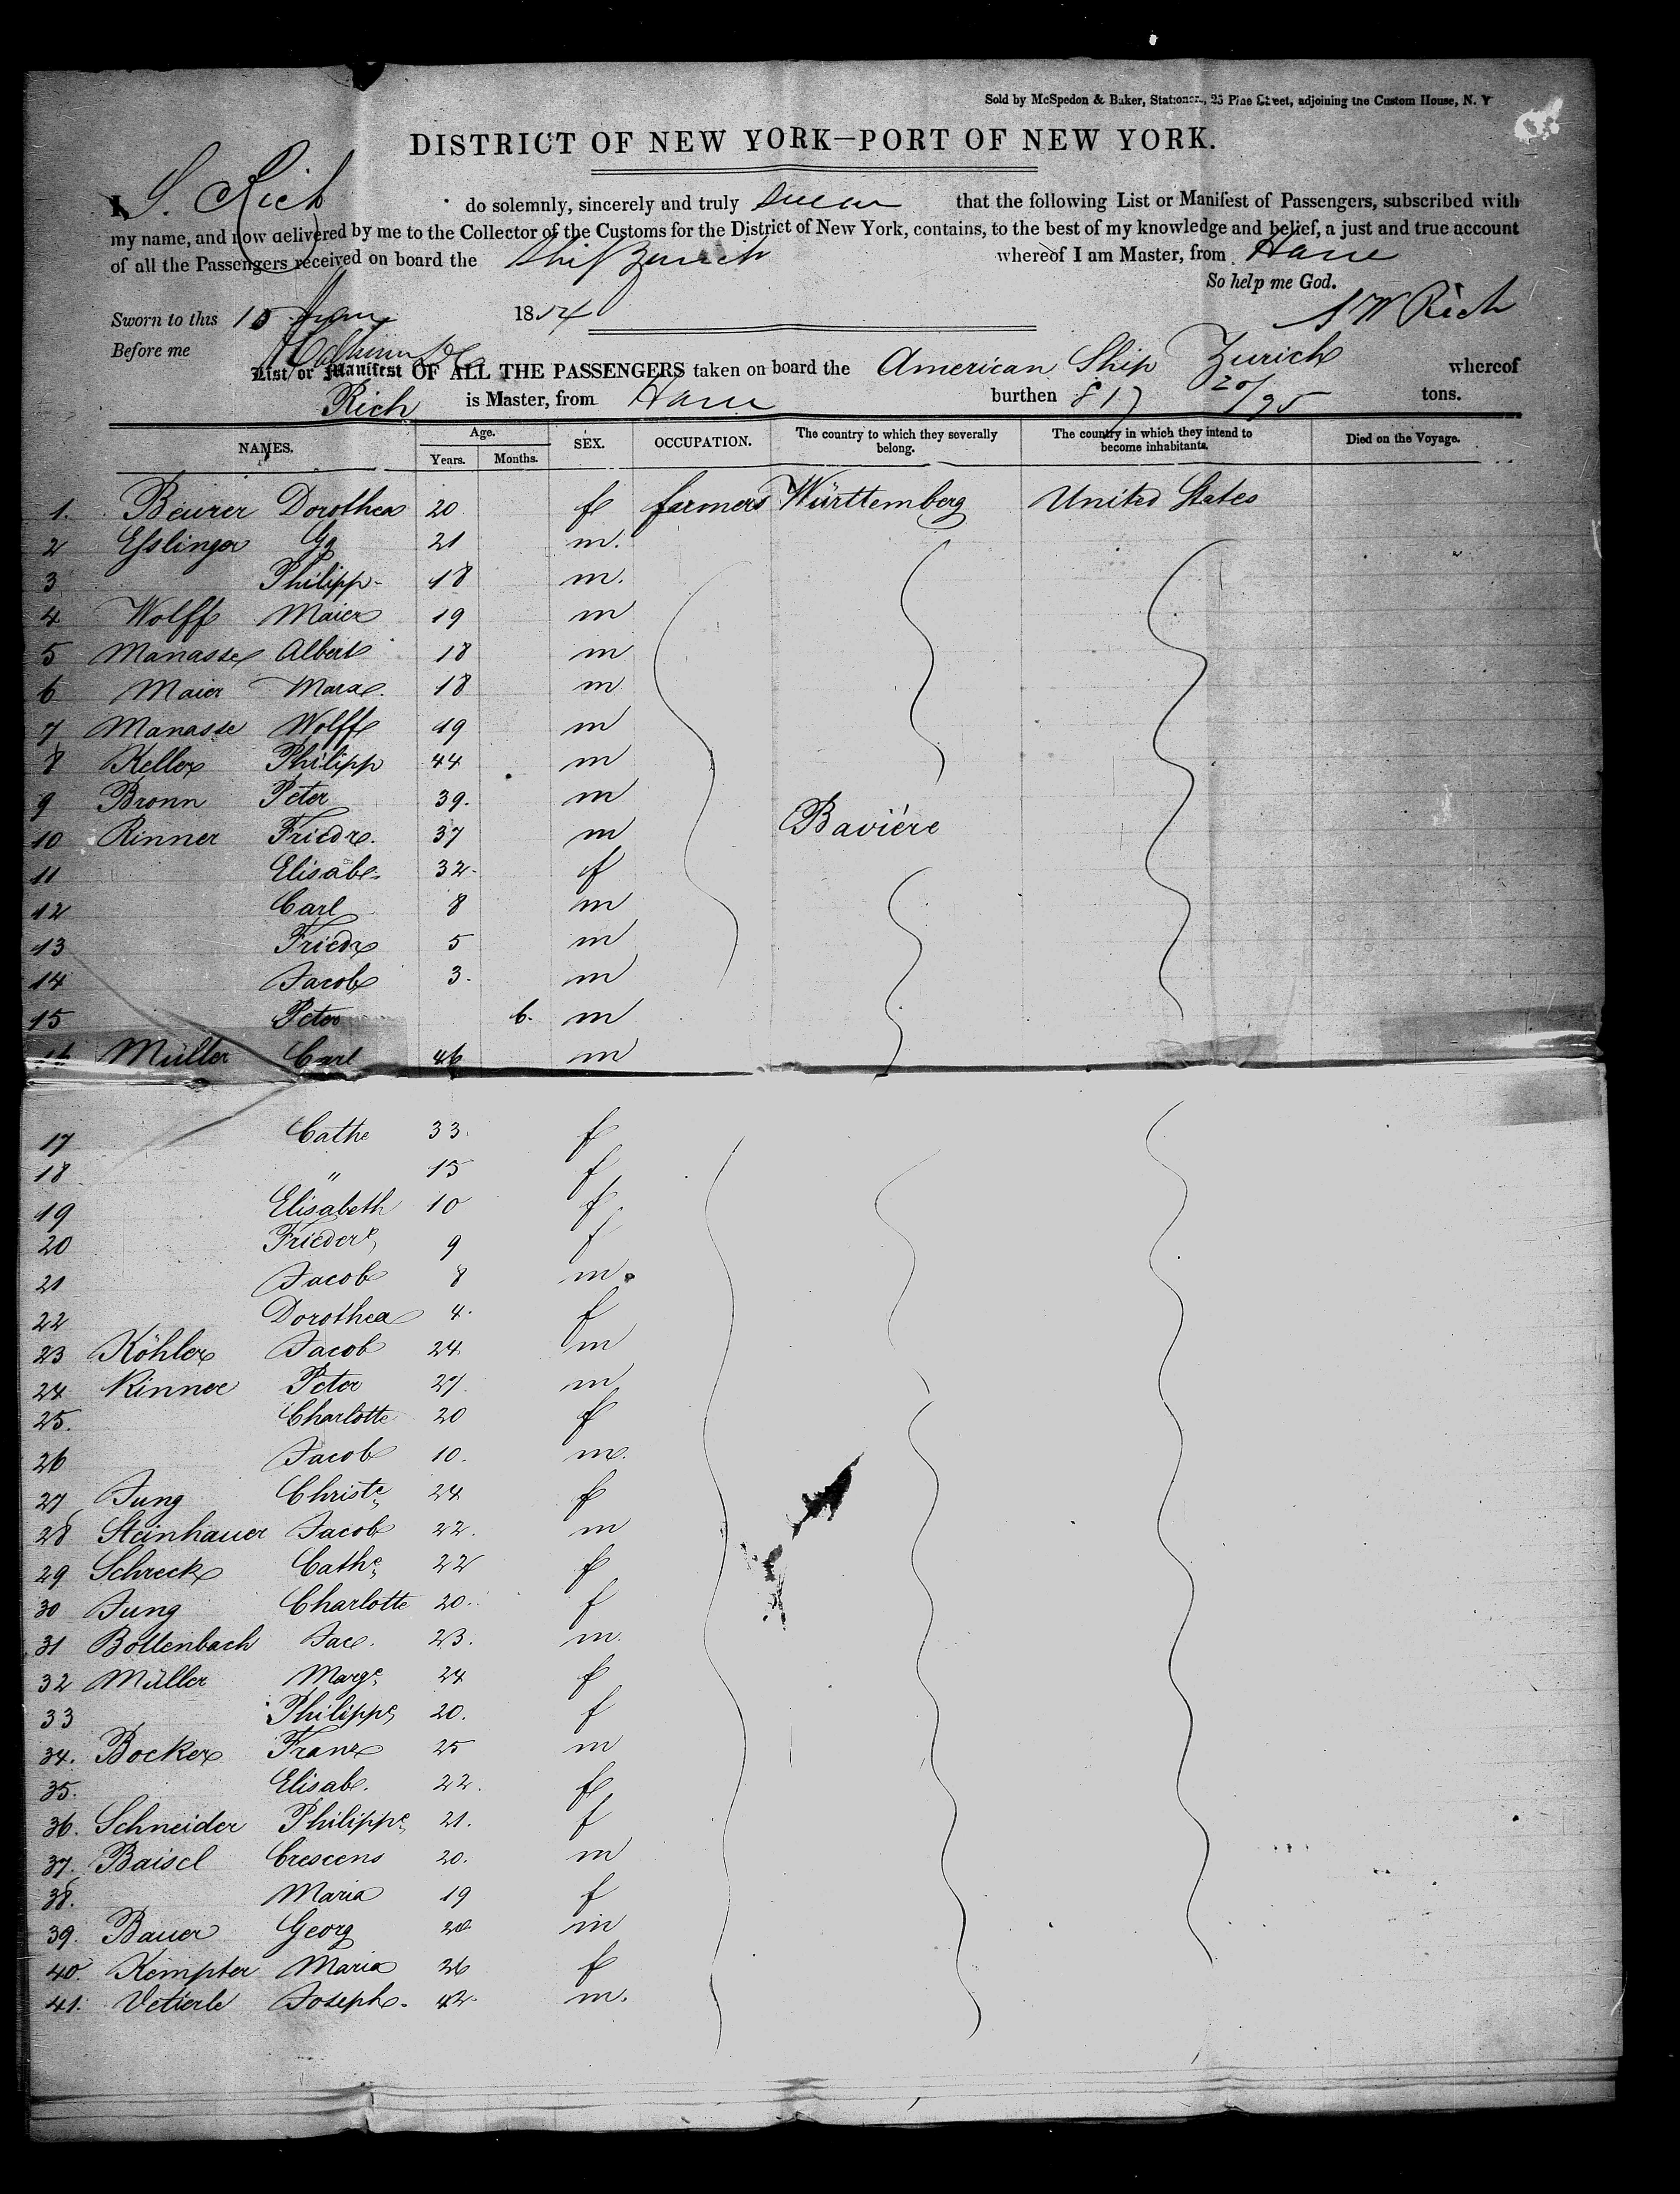 Sold by McSpedon & Baker, Stationers, 25 Pine Street, adjoining the Custom House, N. Y
DISTRICT OF NEW YORK—PORT OF NEW YORK.
I, S. Rich do solemnly, sincerely and truly swear that the following List or Manifest of Passengers, subscribed with
my name, and now delivered by me to the Collector of the Customs for the District of New York, contains, to the best of my knowledge and belief, a just and true account
of all the Passengers received on board the Ship Zurich whereof I am Master, from Havre
So help me God.
Sworn to this 10 1854 S W Rich
Before me
List or Manifest OF ALL THE PASSENGERS taken on board the American Ship Zurich whereof
Rich is Master, from Havre burthen 817 20/95 tons.
NAMES. Age. Years. Months. SEX. OCCUPATION. The country to which they severally belong. The country in which they intend to become inhabitants. Died on the Voyage.
1. Beurer Dorothea 20 fe farmers Württemberg United States
2 Esslinger Gg 21 m.
3 Philipp 18 m.
4 Wolff Maier 19 m
5 Manasse Albert 18 m
6 Maier Marx. 18 m
7 Manasse Wolff 19 m
8 Keller Philipp 44 m
9 Bronn Peter 39. m Baviére
10 Rinner Friedr. 37 m
11 Elisabe. 32 f
12 Carl 8 m
13 Friedr 5 m
14 Jacob 3. m
15 Peter 6. m
16 Müller Carl 46 m
17 Cathe 33. f
18 " 15 f
19 Elisabeth 10 f
20 Friedere 9 f
21 Jacob 8 m
22 Dorothea 4. f
23 Köhler Jacob 24 m
24 Rinner Peter 27. m
25. Charlotte 20 f
26 Jacob 10. m.
27 Jung Christe 24 f
28 Steinhauer Jacob 22. m
29 Schreck Cathe 22 f
30 Jung Charlotte 20. f
31 Bottenbach Jac. 23. m.
32 Müller Marge 24 f
33 Philippe 20. f
34. Bocker Franz 25 m
35. Elisabe. 22. fe
36. Schneider Philippe 21. f
37. Baisel Crescens 20. m
38. Maria 19 f
39. Bauer Georg 20 m
40. Kempter Maria 26 f
41. Vetierle Joseph. 42. m.